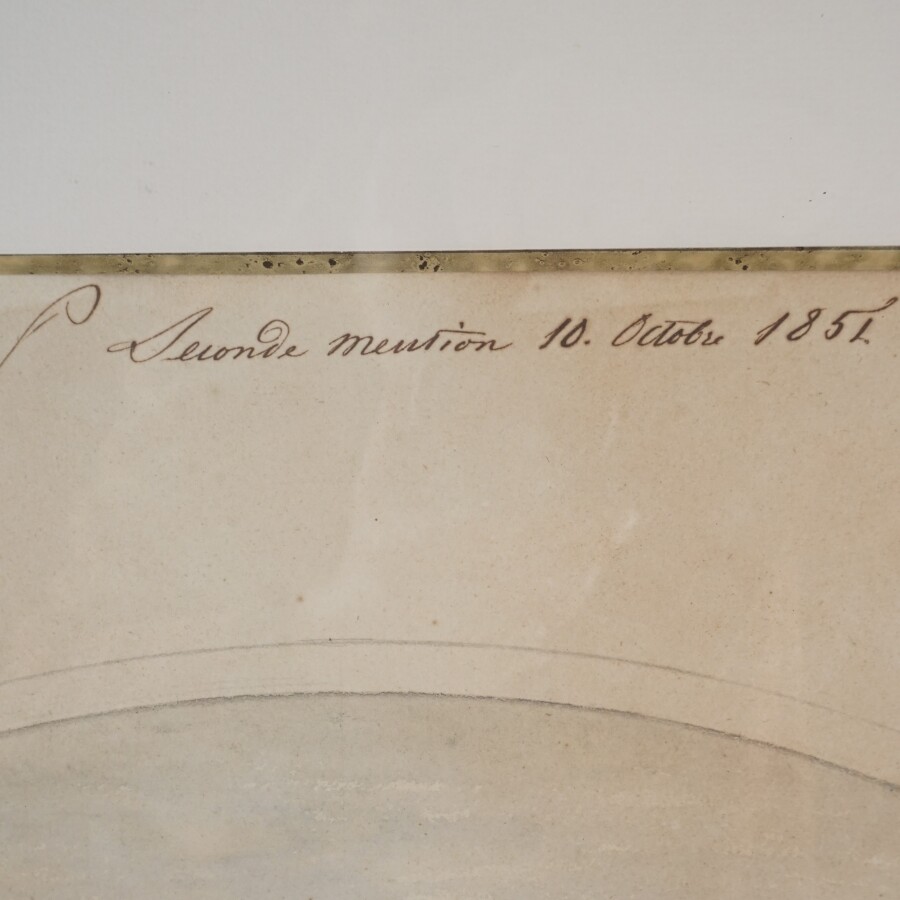 Seconde mention 10. Octobre 1851.